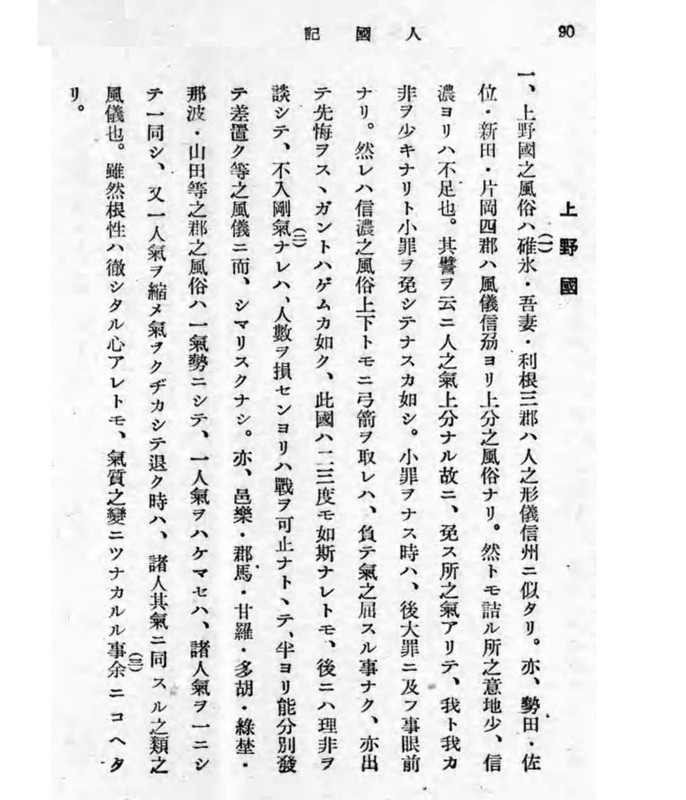 90
人國記
上野國
一、上野國之風俗ハ碓氷・吾妻・利根三郡ハ人之形儀信州ニ似タリ。亦、勢田・佐
(一)
位・新田・片岡四郡ハ風儀信刕ヨリ上分之風俗ナリ。然トモ詰ル所之意地少、信
濃ヨリハ不足也。其譬ヲ云ニ人之氣上分ナル故ニ、免ス所之氣アリテ、我ト我カ
非ヲ少キナリト小罪ヲ免シテナスカ如シ。小罪ヲナス時ハ、後大罪ニ及フ事眼前
ナリ。然レハ信濃之風俗上下トモニ弓箭ヲ取レハ、負テ氣之屈スル事ナク、亦出
テ先悔ヲスヽガントハゲムカ如ク、此國ハ二三度モ如斯ナレトモ、後ニハ理非ヲ
談シテ、不入剛氣ナレハ、人數ヲ損センヨリハ戰ヲ可止ナトヽテ、半ヨリ能分別發
(二)
テ差置ク等之風儀ニ而、シマリスクナシ。亦、邑樂・郡馬・甘羅・多胡・綠埜・
那波・山田等之郡之風俗ハ一氣勢ニシテ、一人氣ヲハケマセハ、諸人氣ヲ一ニシ
テ一同シ、又一人氣ヲ縮メ氣ヲクヂカシテ退ク時ハ、諸人其氣ニ同スル之類之
風儀也。雖然根性ハ徹シタル心アレトモ、氣質之變ニツナカルル事余ニコヘタ
(三)
リ。